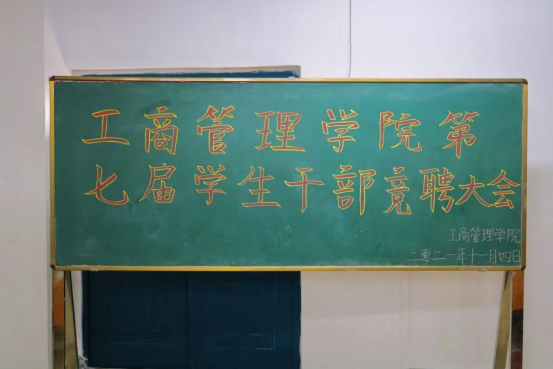 工商管理学院第
七届学生干部竞聘大会
工商管理学院
二零二一年十一月四日